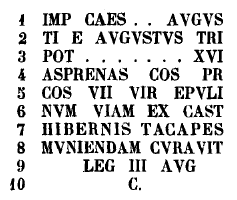 1 IMP CAES . . AVGVS
2 TI E AVGVSTVS TRI
3 POT . . . . . . . XVI
4 ASPRENAS COS PR
5 COS VII VIR EPVLI
6 NVM VIAM EX CAST
7 HIBERNIS TACAPES
8 MVNIENDAM CVRAVIT
9 LEG III AVG
10 C.